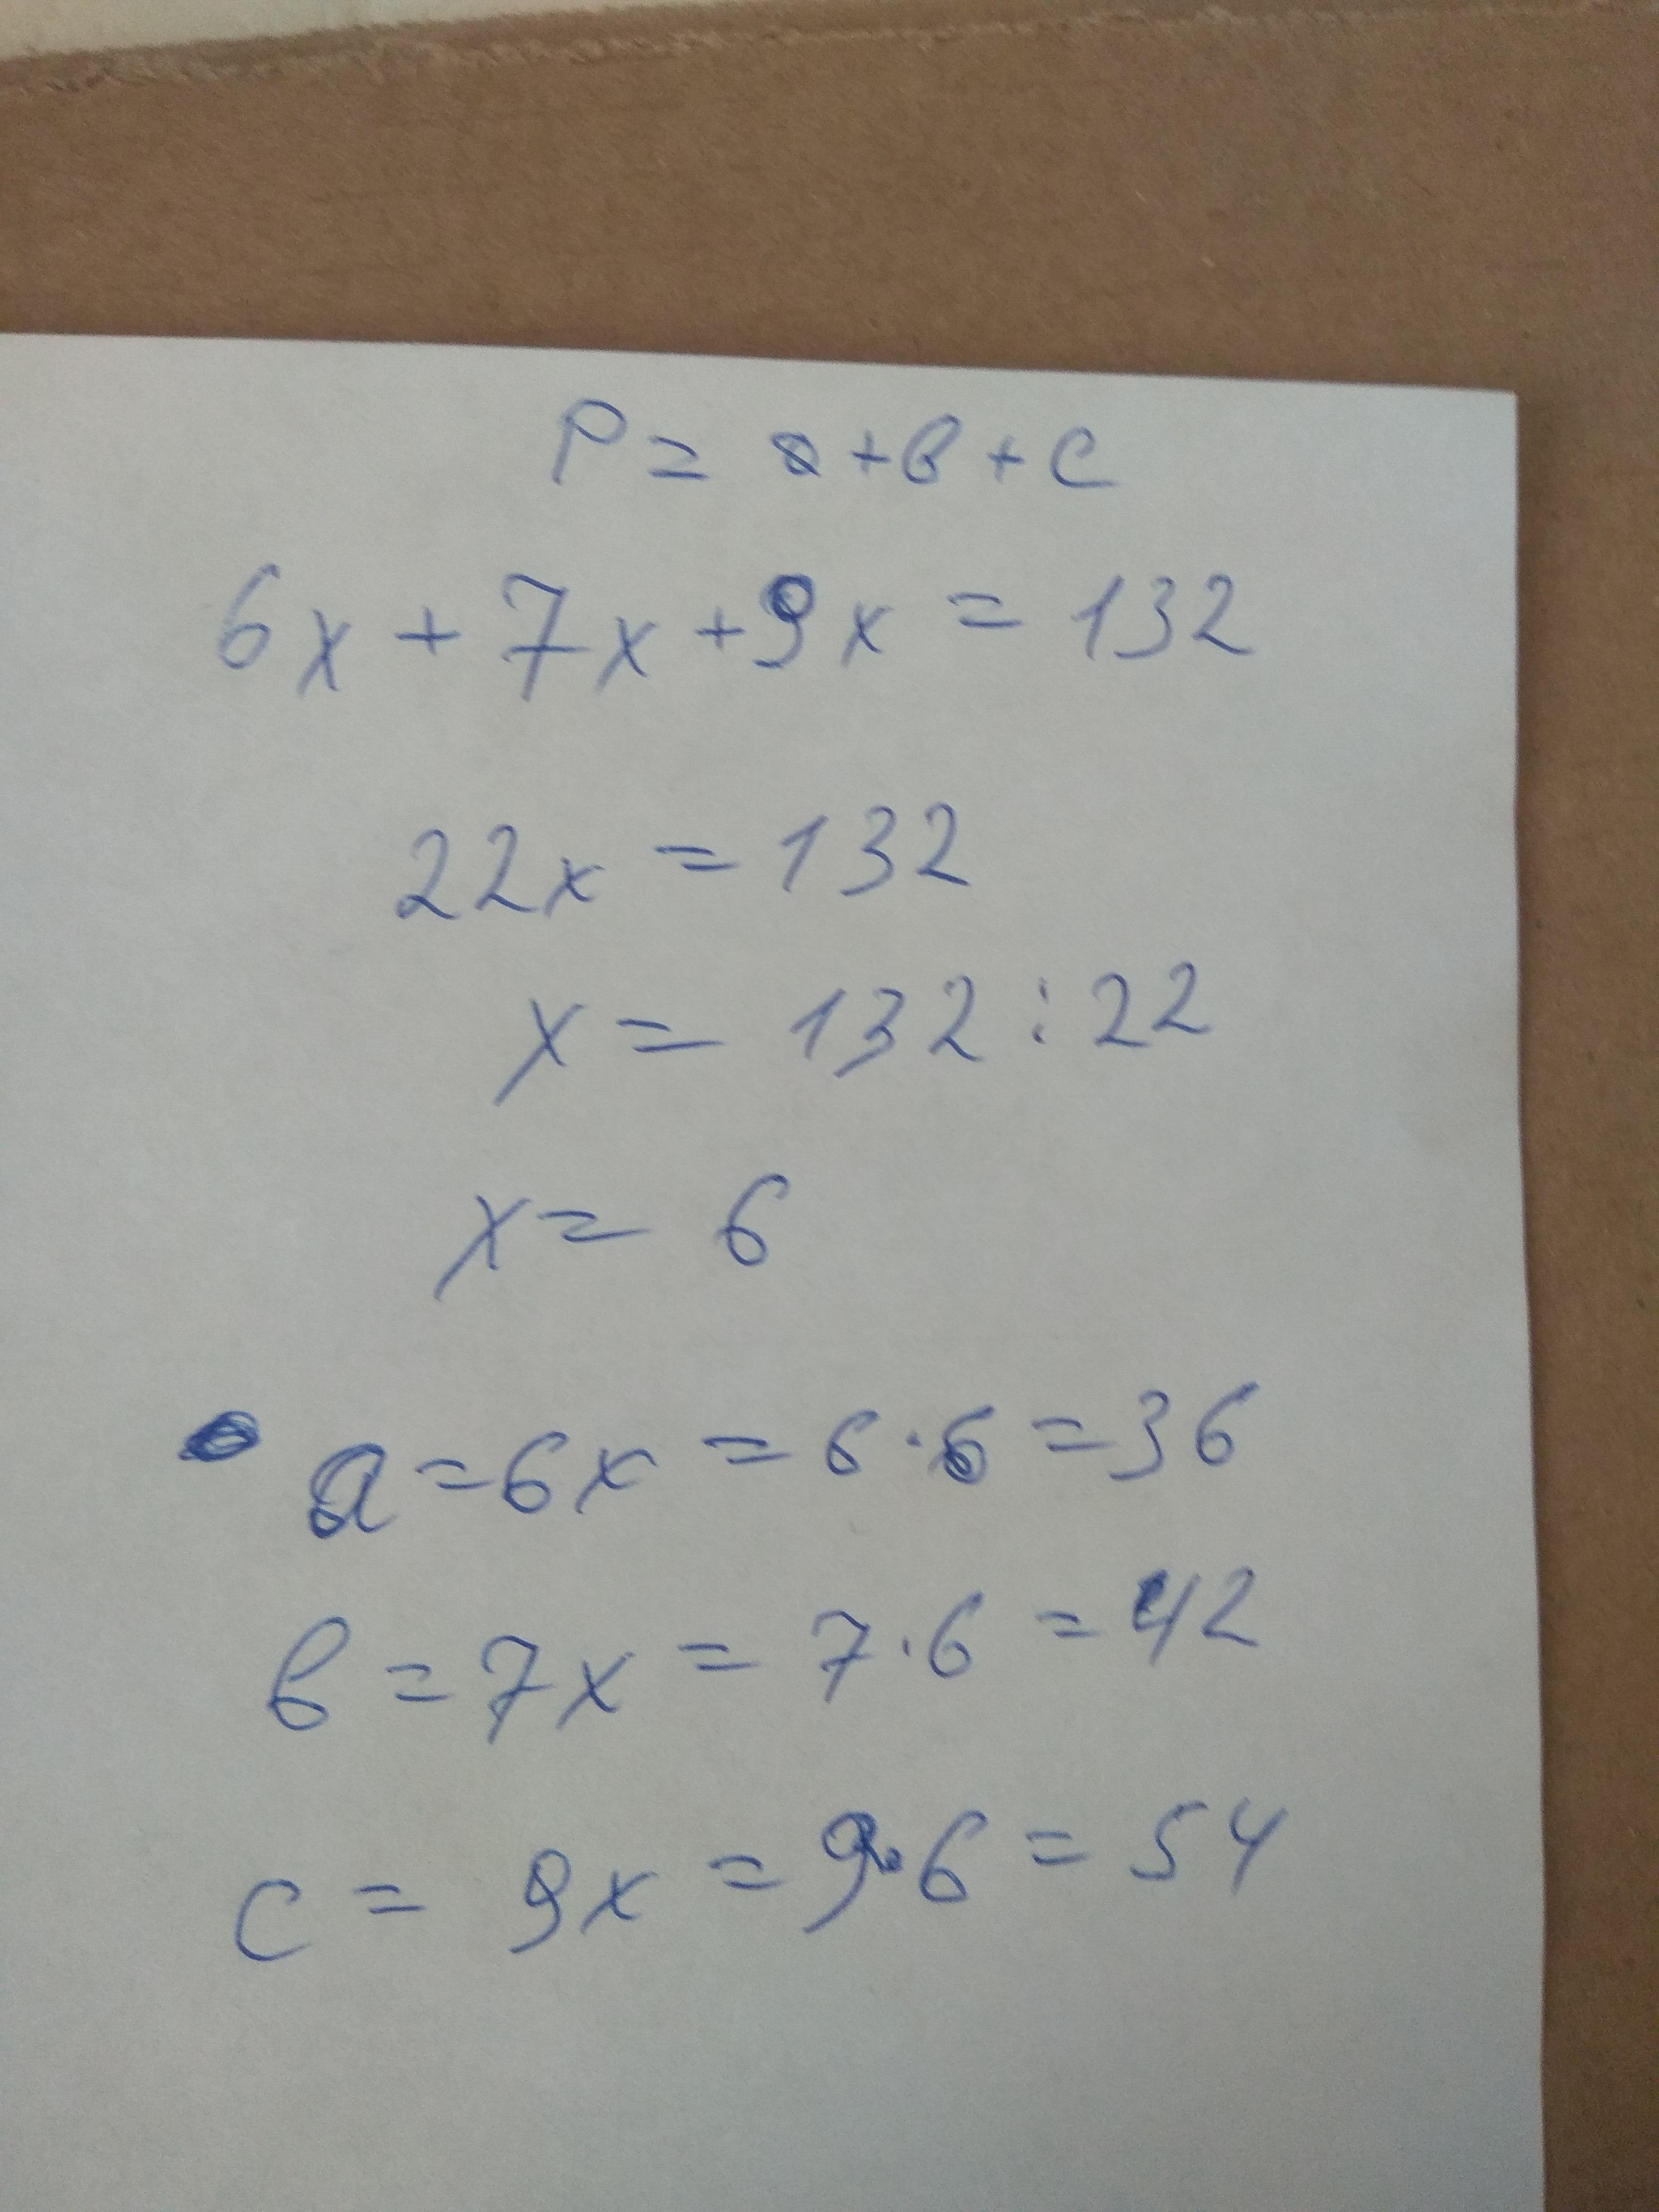 P = a + в + c
6x + 7x + 9x = 132
22x = 132
x = 132 : 22
x = 6
a = 6x = 6 · 6 = 36
в = 7x = 7 · 6 = 42
c = 9x = 9 · 6 = 54